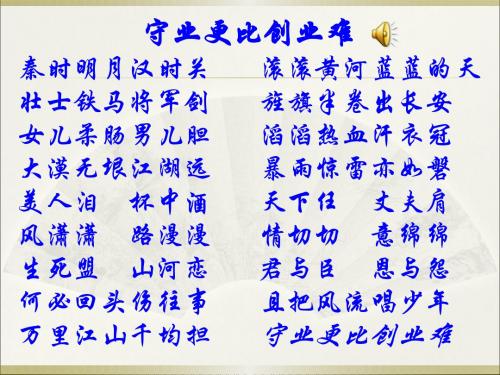 守业更比创业难
秦时明月汉时关 滚滚黄河蓝蓝的天
壮士铁马将军剑 旌旗半卷出长安
女儿柔肠男儿胆 滔滔热血汗衣冠
大漠无垠江湖远 暴雨惊雷亦如磐
美人泪 杯中酒 天下任 丈夫肩
风潇潇 路漫漫 情切切 意绵绵
生死盟 山河恋 君与臣 恩与怨
何必回头伤往事 且把风流唱少年
万里江山千均担 守业更比创业难